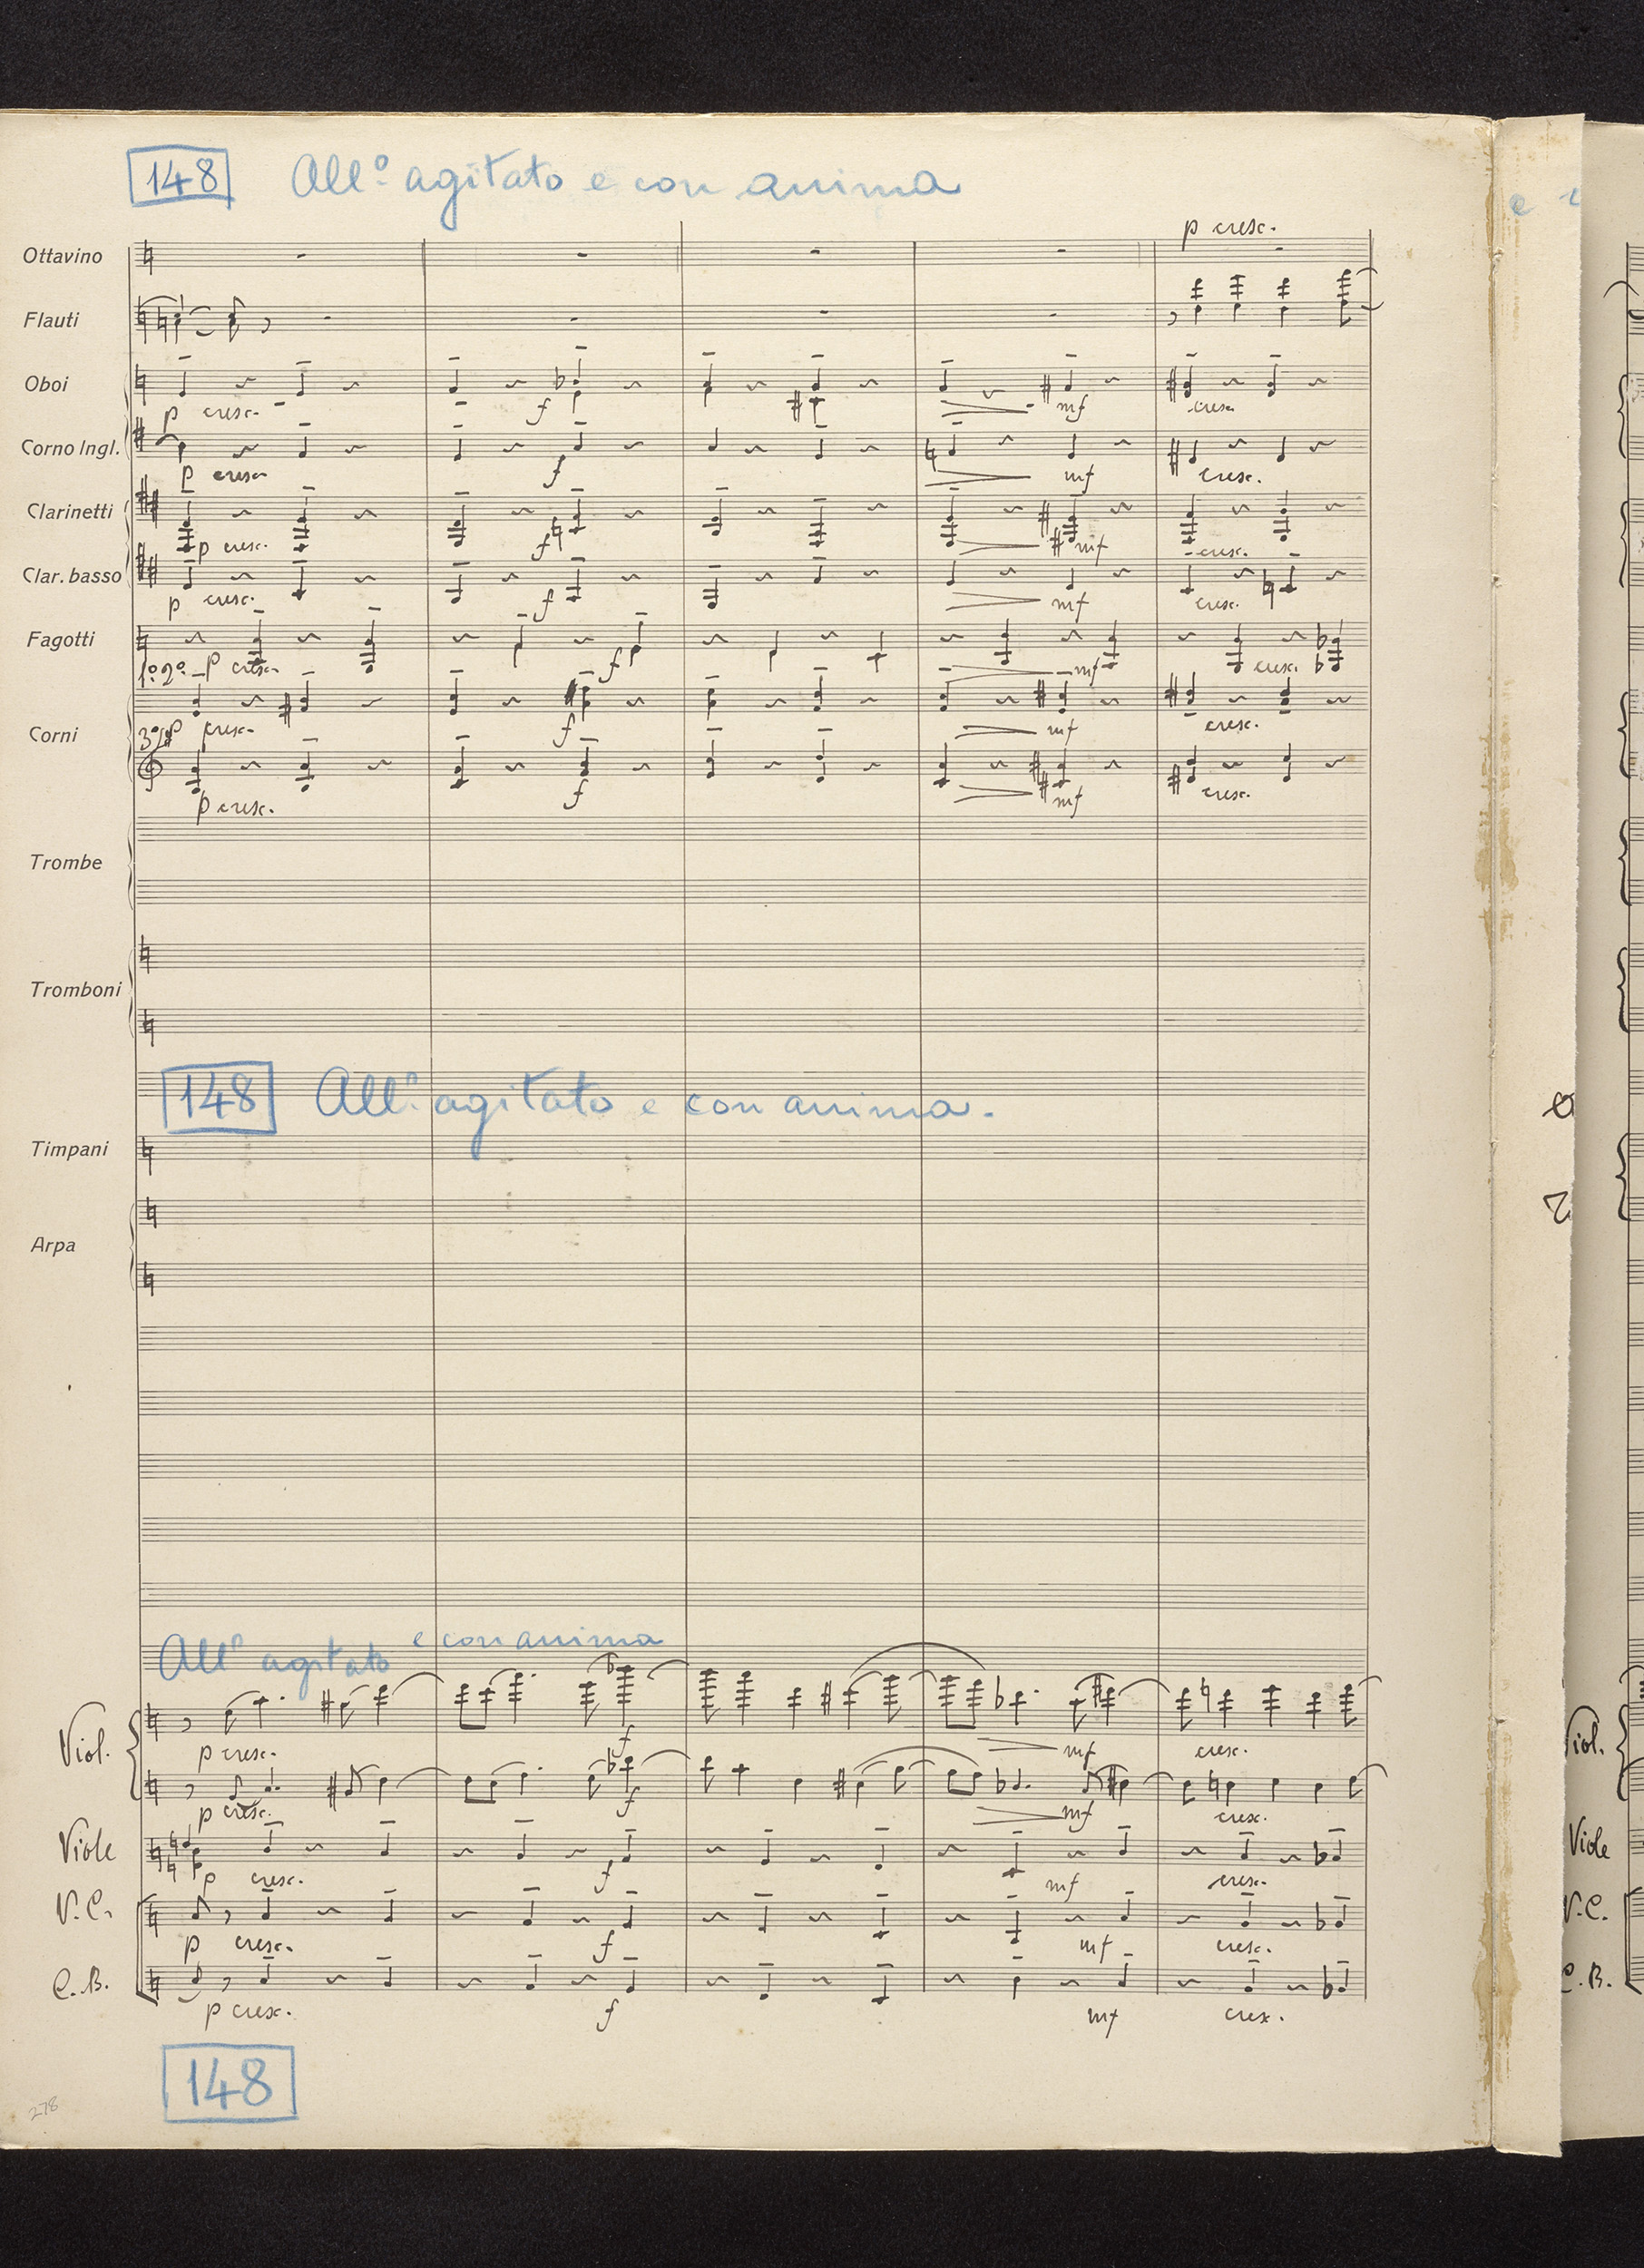 148 All.º agitato e con anima
p cresc.
Ottavino
Flauti
Oboi
p cresc. f mf cresc.
Corno Ingl.
p cresc f mf cresc.
Clarinetti
p cresc. f mf cresc.
Clar. basso
p cresc. f mf cresc.
Fagotti
p cresc. f mf cresc.
1º 2º
Corni
p cresc. f mf cresc.
3º
p cresc. f mf cresc.
Trombe
Tromboni
148 All.º agitato e con anima.
Timpani
Arpa
All.º agitato e con anima
Viol.
p cresc. f mf cresc.
p cresc. f mf cresc.
Viole
p cresc. f mf cresc.
V.C.
p cresc. f mf cresc.
C.B.
p cresc. f mf cresc.
148
278
e
Viol.
Viole
V.C.
C.B.